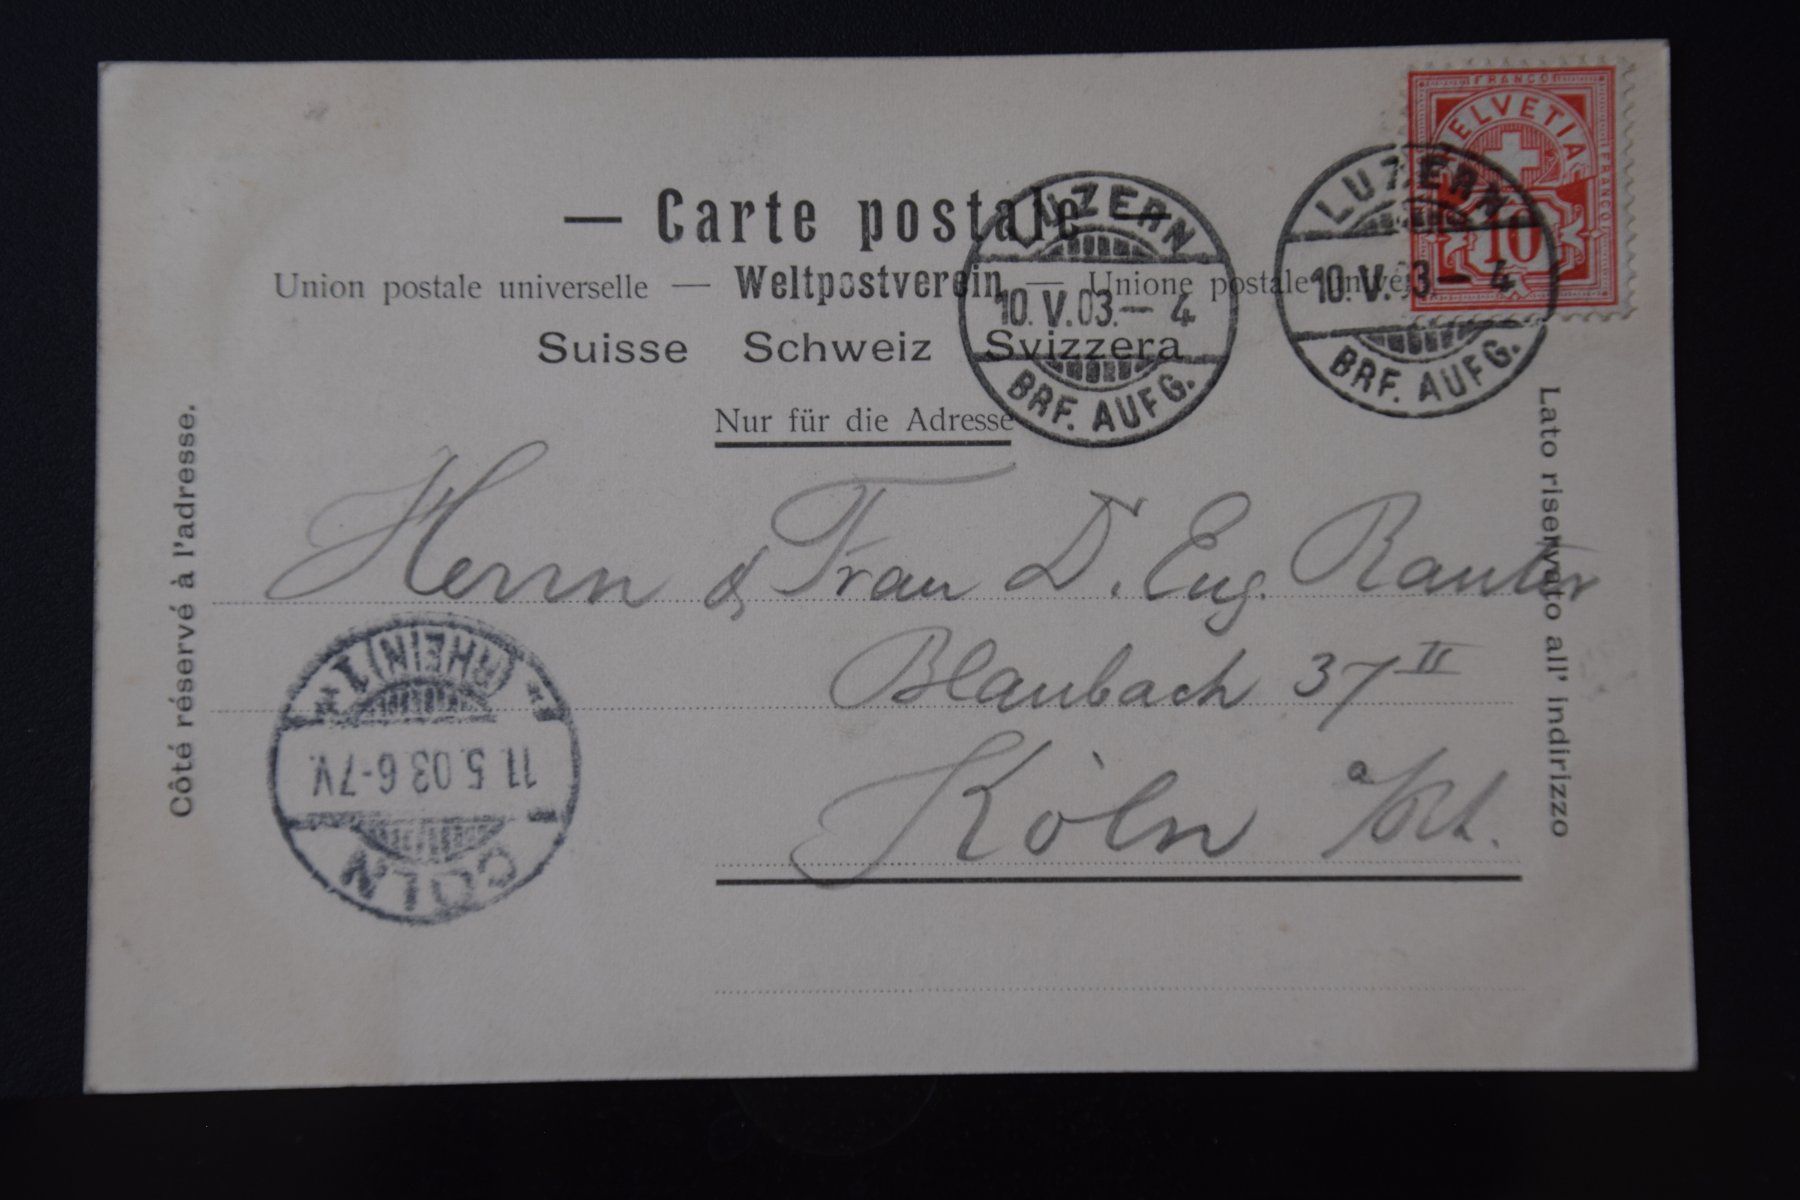 — Carte postale —
Union postale universelle — Weltpostverein — Unione postale
Suisse Schweiz Svizzera
Nur für die Adresse
Côté réservé à l'adresse.
Lato riservato all' indirizzo
FRANCO
HELVETIA
FRANCO
10
LUZERN
10. V. 03. — 4
BRF. AUFG.
LUZERN
10. V. 03 — 4
BRF. AUFG.
Herrn & Frau D. Eug. Rauter
Blaubach 37 II
Köln a/Rh.
CÖLN
11. 5. 03 6-7 V.
* (RHEIN) 1 *